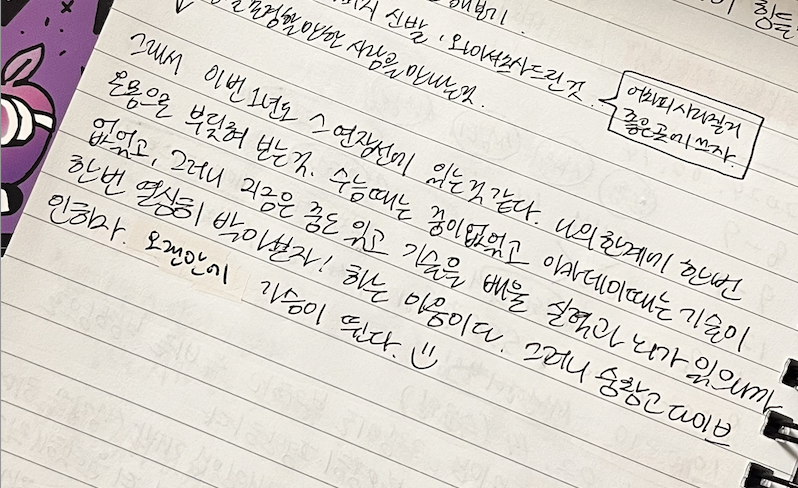 해보기.
신발, 와이셔츠사드린것.
존경할만한 사람을 만나는것.
어차피 사라질거
좋은곳에 쓰자.
그래서 이번 1년도 그 연장선에 있는것 같다. 나의 한계에 한번
온몸으로 부딪혀 보는것. 수능때는 중이없었고 아카데미때는 기술이
없었고, 그러니 지금은 중도 있고 기술을 배울 실력과 뇌가 있으니까
한번 열심히 박아보자! 하는 마음이다. 그러니 숨참고 다이브
인하자. 오랜만에 가슴이 뛴다.